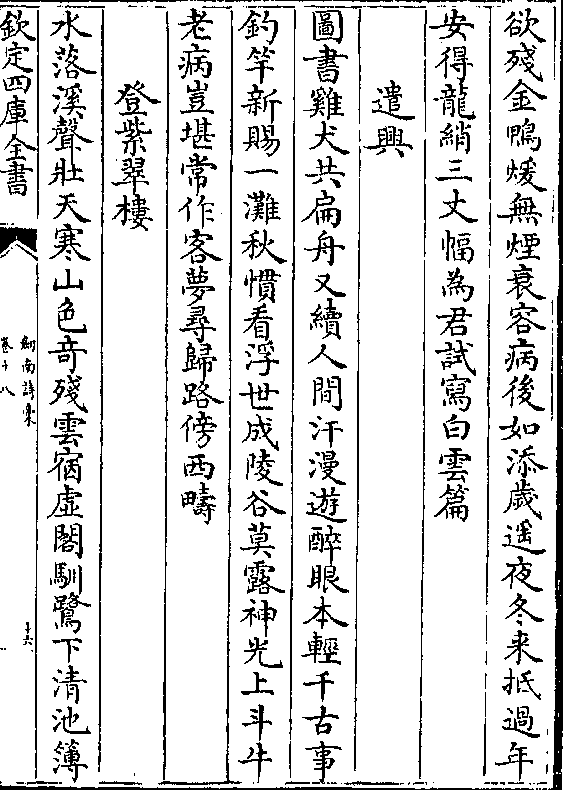 欲殘金鴨煖無煙衰容病後如添歲遥夜冬来抵過年
安得龍綃三丈幅為君試寫白雲篇
遣興
圖書雞犬共扁舟又續人間汗漫遊醉眼本輕千古事
釣竿新賜一灘秋慣看浮世成陵谷莫露神光上斗牛
老病豈堪常作客夢尋歸路傍西疇
登紫翠樓
水落溪聲壯天寒山色竒殘雲宿虛閣馴鷺下清池簿
欽定四庫全書
劍南詩稾
卷十八
十六